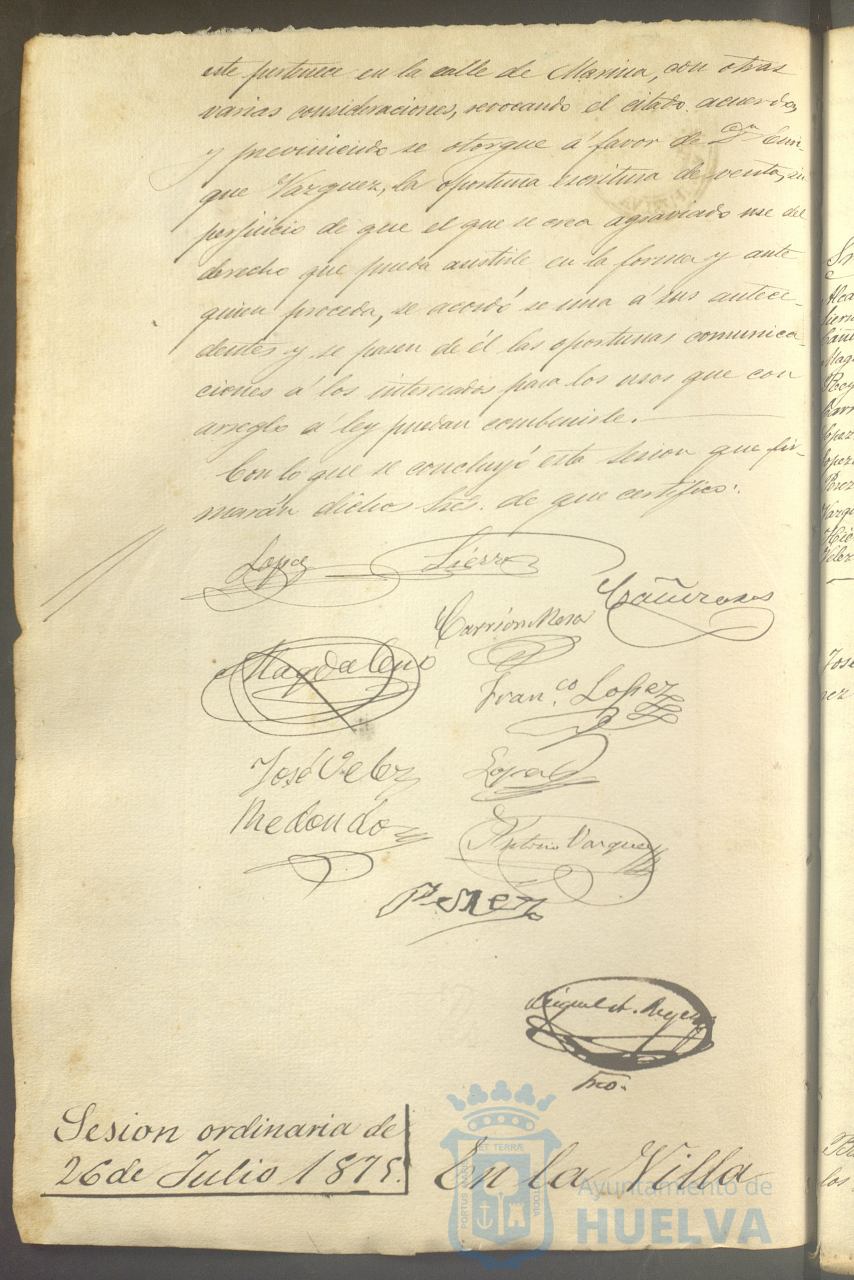 este pertenece en la calle de Marina, con otras
varias consideraciones, revocando el citado acuerdo,
y previniendo se otorgue á favor de Dn Enri-
que Vazquez, la oportuna escritura de venta, sin
perjuicio de que el que se crea agraviado use del
derecho que pueda asistirle en la forma y ante
quien proceda, se acordó se una á sus antece-
dentes y se pasen de él las oportunas comunica-
ciones á los interesados para los usos que con
arreglo á ley puedan combenirle.
Con lo que se concluyó esta sesion que fir-
marán dichos Sres. de que certifico.
Lopez Sierra
Cañizares
Carrión Mora
Magdaleno
Franco. Lopez
José Velez Lopez
Redondo
Antonio Vazquez
Perez
Miguel A.
Srio.
Sesion ordinaria de
26 de Julio 1875.
En la Villa
ET TERRAE
PORTUS
CUSTODIA
Ayuntamiento de
HUELVA